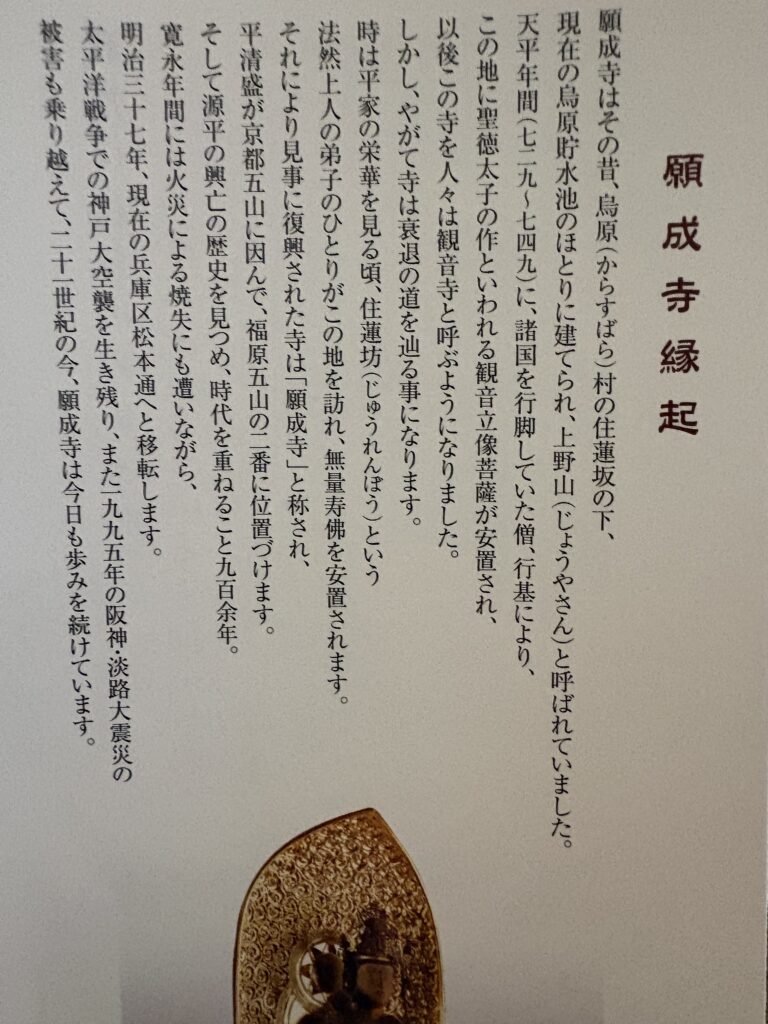 願成寺縁起
願成寺はその昔、烏原(からすばら)村の住蓮坂の下、
現在の烏原貯水池のほとりに建てられ、上野山(じょうやさん)と呼ばれていました。
天平年間(七二九〜七四九)に、諸国を行脚していた僧、行基により、
この地に聖徳太子の作といわれる観音立像菩薩が安置され、
以後この寺を人々は観音寺と呼ぶようになりました。
しかし、やがて寺は衰退の道を辿る事になります。
時は平家の栄華を見る頃、住蓮坊(じゅうれんぼう)という
法然上人の弟子のひとりがこの地を訪れ、無量寿佛を安置されます。
それにより見事に復興された寺は「願成寺」と称され、
平清盛が京都五山に因んで、福原五山の二番に位置づけます。
そして源平の興亡の歴史を見つめ、時代を重ねること九百余年。
寛永年間には火災による焼失にも遭いながら、
明治三十七年、現在の兵庫区松本通へと移転します。
太平洋戦争での神戸大空襲を生き残り、また一九九五年の阪神・淡路大震災の
被害も乗り越えて、二十一世紀の今、願成寺は今日も歩みを続けています。